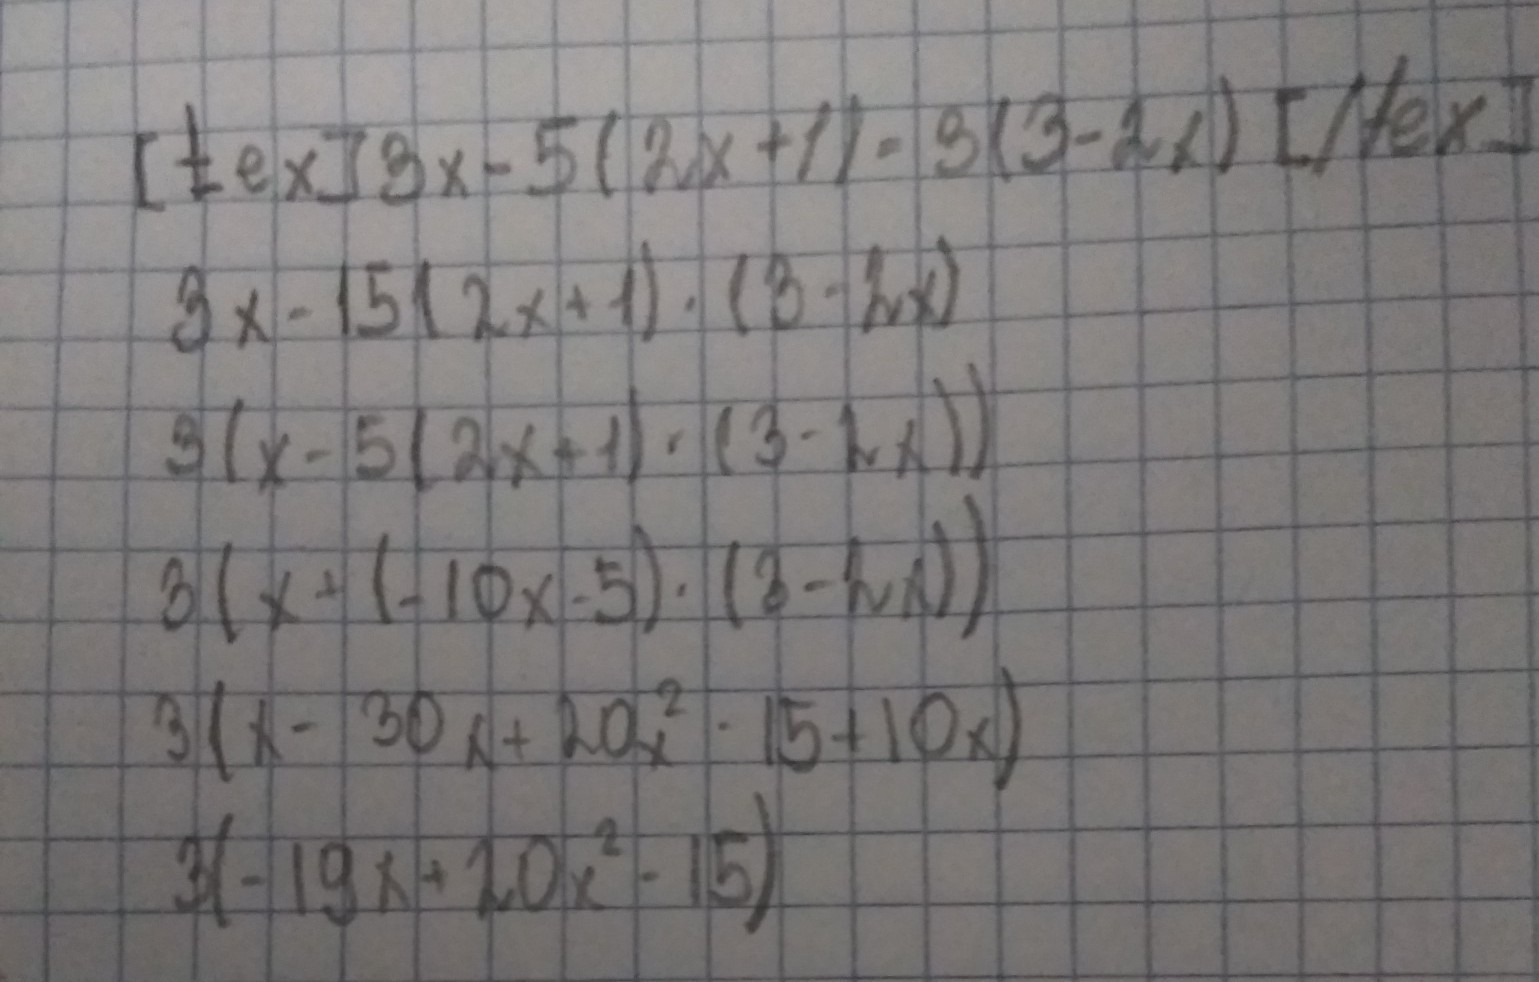 [tex]3x-5(2x+1)·3(3-2x)[/tex]
3x-15(2x+1)·(3-2x)
3(x-5(2x+1)·(3-2x))
3(x+(-10x-5)·(3-2x))
3(x-30x+20x²-15+10x)
3(-19x+20x²-15)